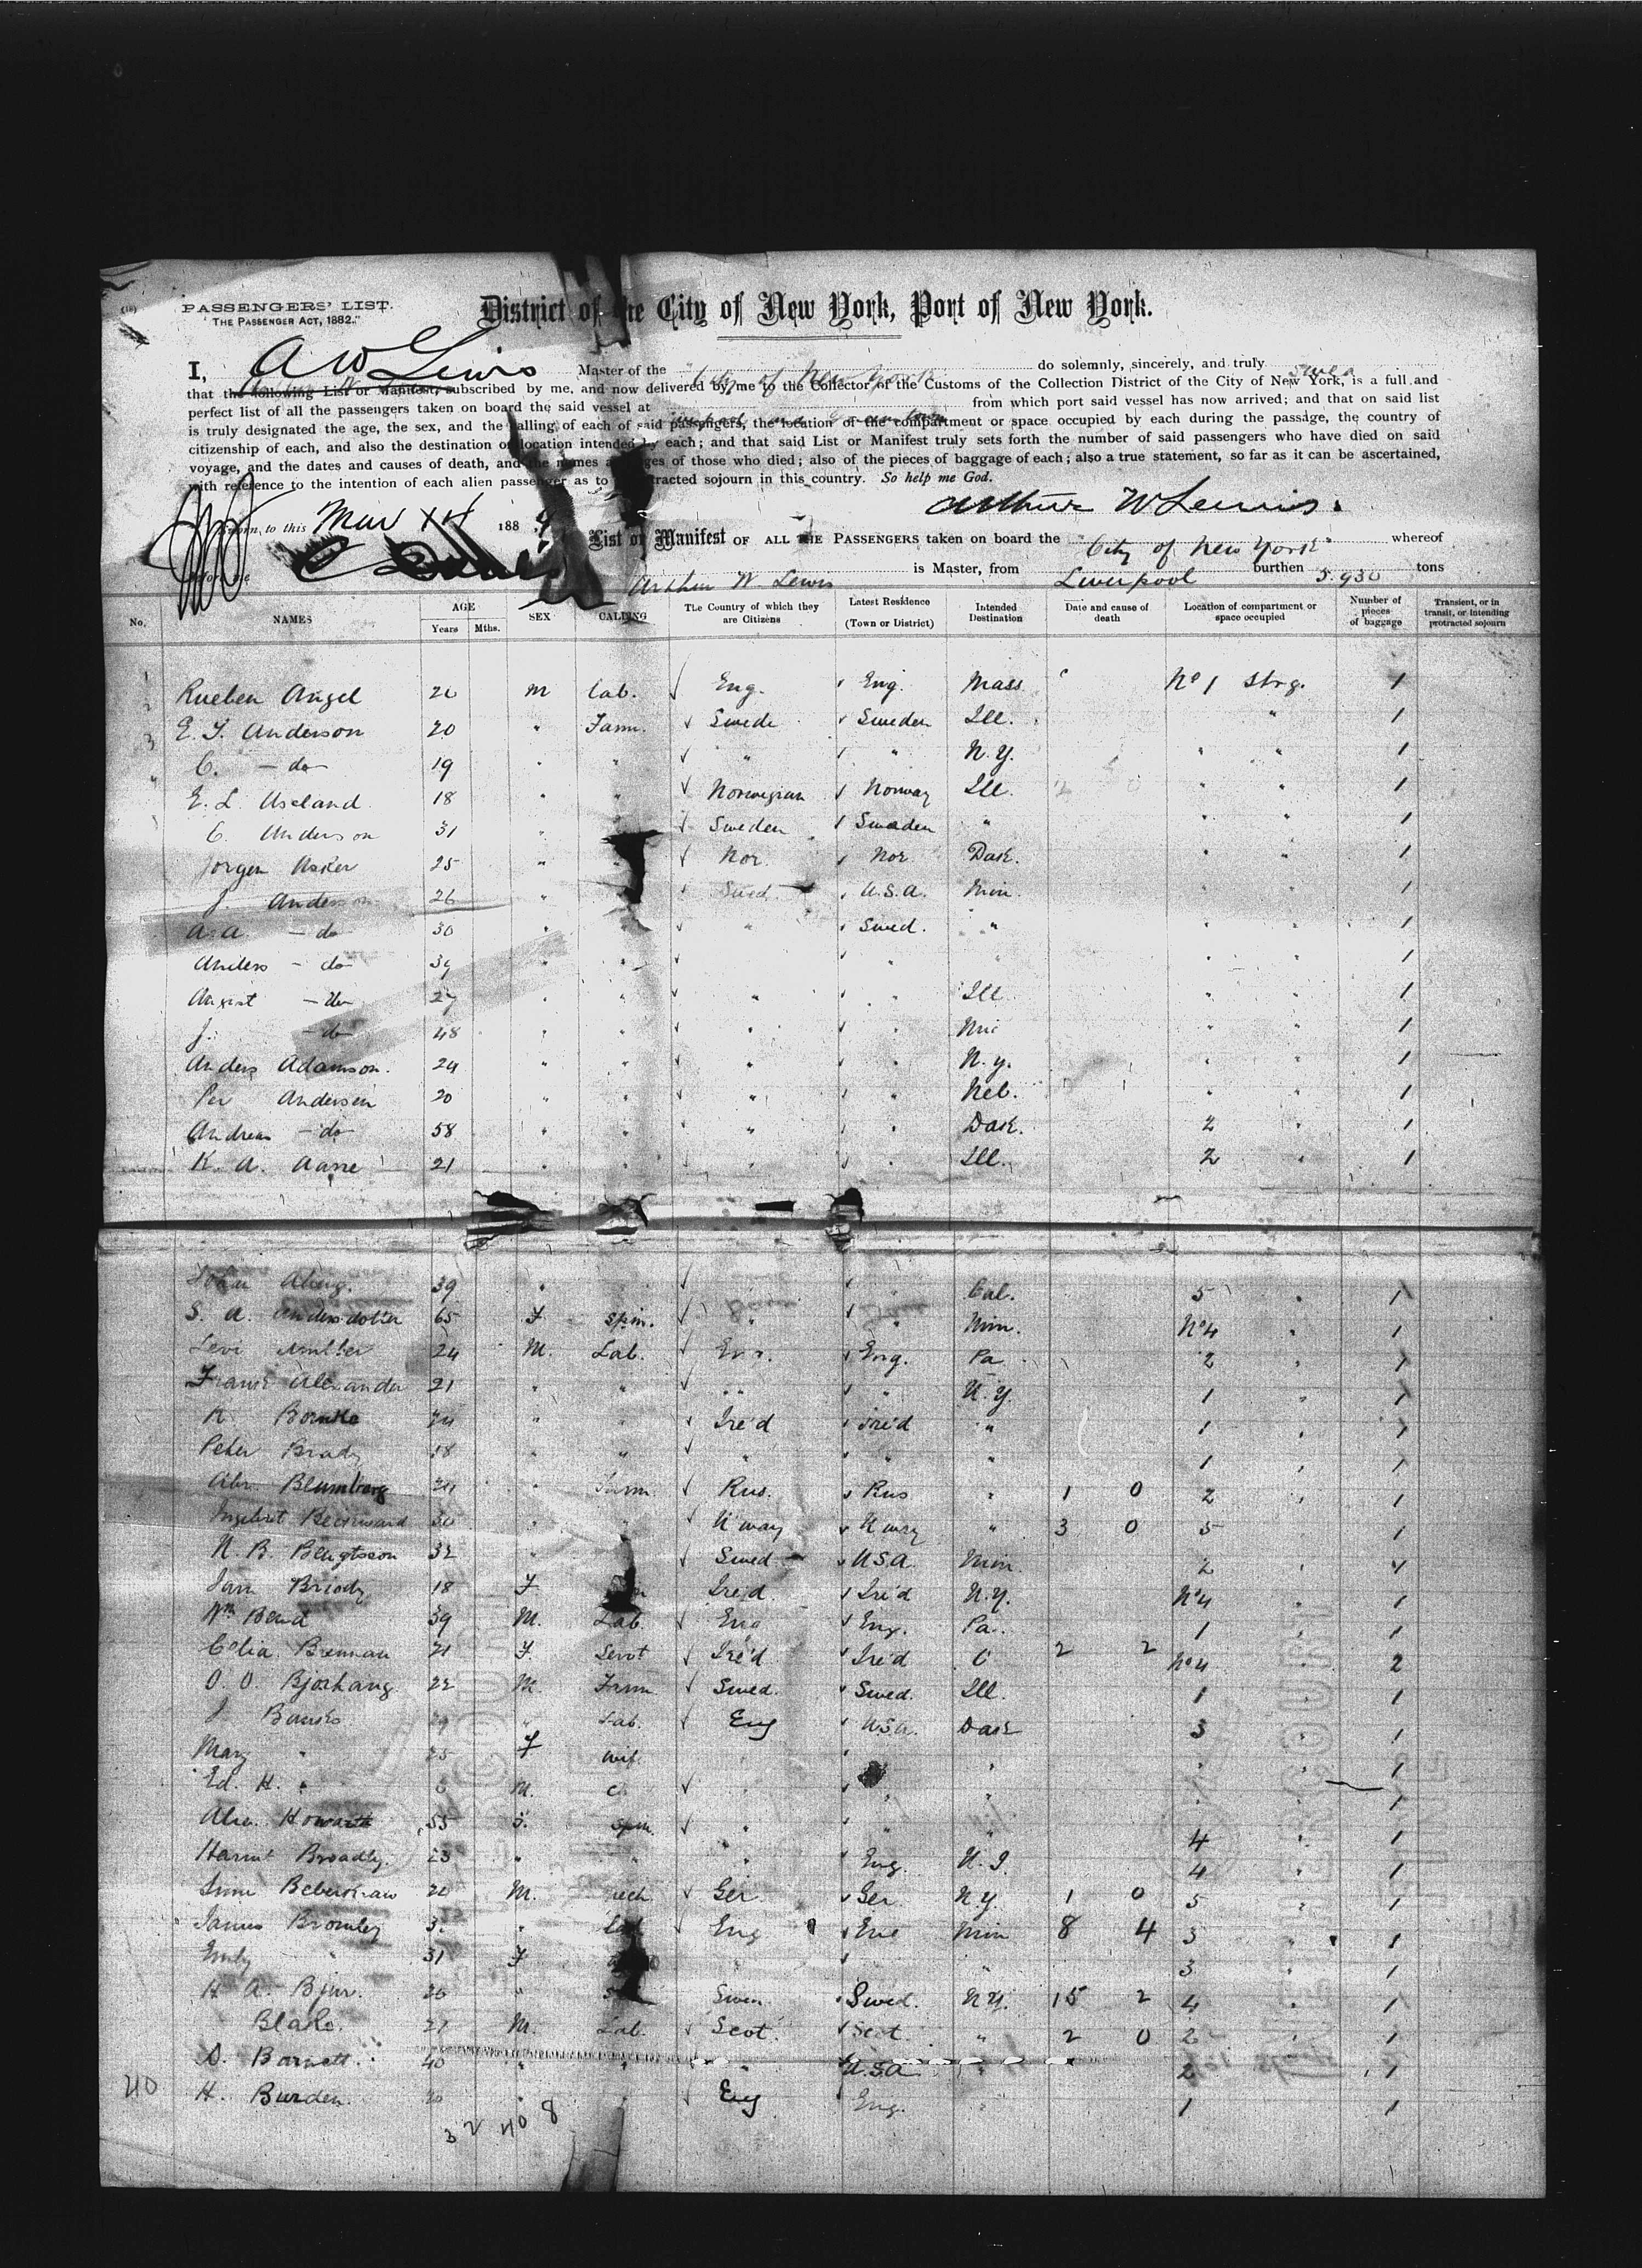 PASSENGERS' LIST.
"THE PASSENGER ACT, 1882."
District of the City of New York, Port of New York.
I, A W Lewis Master of the City of New York do solemnly, sincerely, and truly swear
that the following List or Manifest, subscribed by me, and now delivered by me to the Collector of the Customs of the Collection District of the City of New York, is a full and
perfect list of all the passengers taken on board the said vessel at from which port said vessel has now arrived; and that on said list
is truly designated the age, the sex, and the calling of each of said passengers, the location of the compartment or space occupied by each during the passage, the country of
citizenship of each, and also the destination or location intended by each; and that said List or Manifest truly sets forth the number of said passengers who have died on said
voyage, and the dates and causes of death, and the names ages of those who died; also of the pieces of baggage of each; also a true statement, so far as it can be ascertained,
with reference to the intention of each alien passenger as to protracted sojourn in this country. So help me God.
Arthur W Lewis.
Sworn to this Mar 14 188
List or Manifest OF ALL THE PASSENGERS taken on board the "City of New York" whereof
Arthur W. Lewis is Master, from Liverpool burthen 5930 tons
No. NAMES AGE Years Mths. SEX CALLING The Country of which they are Citizens Latest Residence (Town or District) Intended Destination Date and cause of death Location of compartment or space occupied Number of pieces of baggage Transient, or in transit, or intending protracted sojourn
1 Rueben Angel M Lab. Eng. Eng. Mass No 1 Strg. 1
2 E. F. Anderson 20 " Farm. Swede Sweden Ill. " 1
3 C. - do 19 " " " " N.Y. " " 1
E. L. Aseland 18 " " Norwegian Norway Ill. " " 1
C. Anderson 31 " Sweden Sweden " " " 1
Jorgen Asker 25 " " Nor. Nor Dak. " " 1
J. Anderson 26 " Swed. U.S.A. Min. " " 1
A. A. - do 30 " " Swed. " " " 1
Anders - do 39 " " " " " " 1
August - do 27 " " " " Ill. " " 1
J. - do 48 " " " " " " 1
Anders Adamson. 24 " " " " N.Y. " " 1
Per Andersen 20 " " " " Neb. " " 1
Andreas - do 58 " " " " Dak. 2 " 1
K. A. Aarre 21 " " " " Ill. 2 " 1
39 " Cal. 5 " 1
S. A. Andersdotter 65 F Spin. " Min. No 4 " 1
Levi 24 M. Lab. Eng. Eng. Pa 2 " 1
Frank Alexander 21 " " " " N.Y. 1 " 1
" " Ire'd Ire'd " 1 " 1
Peter Brady 18 " " " " " 1 " 1
Abr. Blumberg Farm Rus. Rus " 1 0 2 " 1
30 " " N'way N'way " 3 0 5 " 1
N. B. Bengtsson 32 " Swed U.S.A. Min. 2 "
Briody 18 F Ire'd Ire'd N.Y. No 4 " 1
Wm 39 M. Lab. Eng Eng. Pa. 1 " 1
Celia Brennan 21 F. Servt Ire'd Ire'd O 2 2 No 4 " 2
O. O. Bjorhang 22 M. Farm Swed. Swed. Ill. 1 " 1
J Banks " Lab. Eng U.S.A. Dak 3 " 1
Mary " 25 F wife " " " " " 1
Ed. H. " M. Ch " " " " " 1
Howarth 55 F. Spin. " " " 4 " 1
Harriet Broadly. 23 " " " Eng. 4 " 1
M. Ger. Ger N.Y. 1 0 5 " 1
James Bromley " Lab Eng Eng Min 8 4 3 " 1
Emily " 31 F " 3 " 1
H A. Bjur. 26 " Swed. N.Y. 15 2 4 " 1
Blake. 21 M. Lab. Scot. Scot. " 2 0 2 " 1
Barnett. 40 " " " U.S.A. " 2 " 1
40 H. Burden. " " Eng Eng. " 1 1
32 40 8